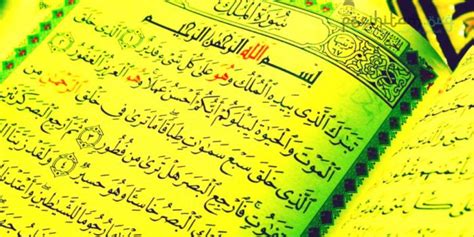 سُورَةُ المُلْكِ
بِسْمِ اللَّهِ الرَّحْمَٰنِ الرَّحِيمِ
تَبَٰرَكَ الَّذِي بِيَدِهِ الْمُلْكُ وَهُوَ عَلَىٰ كُلِّ شَيْءٍ قَدِيرٌ ١ الَّذِي خَلَقَ
الْمَوْتَ وَالْحَيَوٰةَ لِيَبْلُوَكُمْ أَيُّكُمْ أَحْسَنُ عَمَلًا وَهُوَ الْعَزِيزُ الْغَفُورُ ٢
الَّذِي خَلَقَ سَبْعَ سَمَٰوَٰتٍ طِبَاقًا مَّا تَرَىٰ فِي خَلْقِ الرَّحْمَٰنِ مِن
تَفَٰوُتٍ فَارْجِعِ الْبَصَرَ هَلْ تَرَىٰ مِن فُطُورٍ ٣ ثُمَّ ارْجِعِ الْبَصَرَ كَرَّتَيْنِ
الْبَصَرُ خَاسِئًا وَهُوَ حَسِيرٌ ٤ وَلَقَدْ زَيَّنَّا
رُجُومًا لِّلشَّيَٰطِينِ وَأَعْتَدْنَا